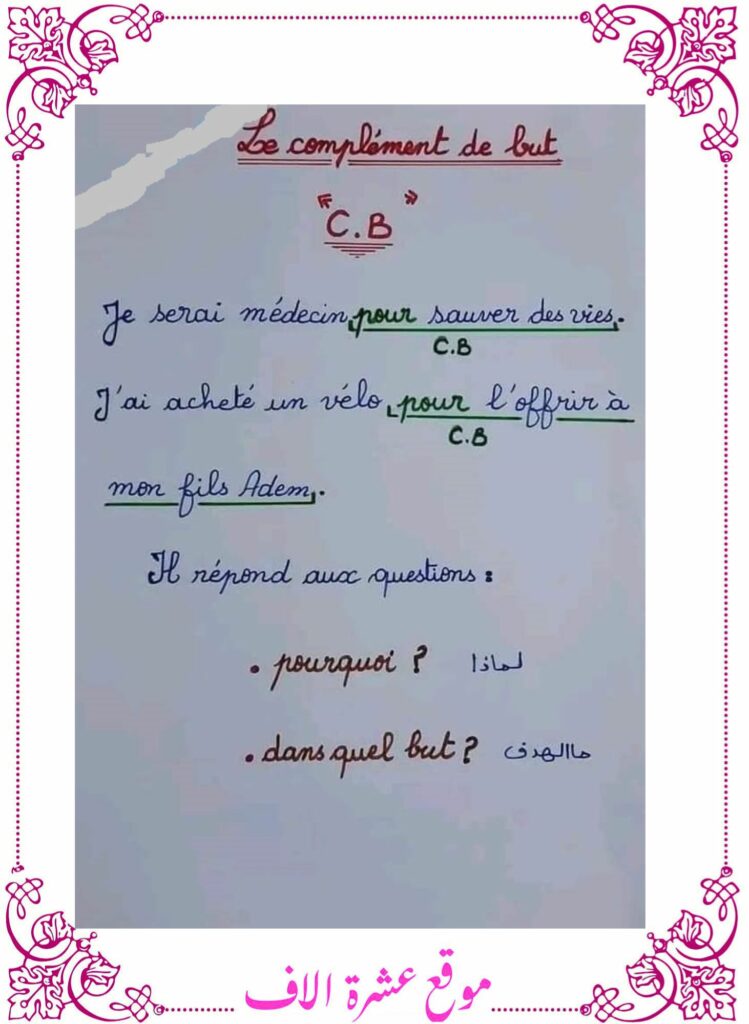 Le complément de but
"C.B"
Je serai médecin pour sauver des vies.
C.B
J'ai acheté un vélo pour l'offrir à
C.B
mon fils Adem.
Il répond aux questions :
• pourquoi ? لماذا
• dans quel but ? ما الهدف
موقع عشرة الاف